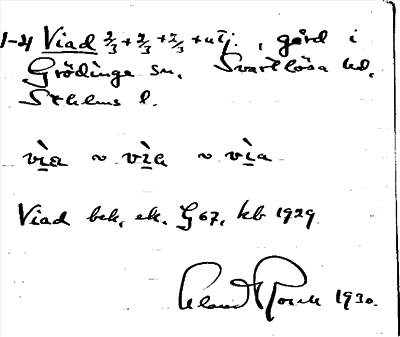 1-4 Viad 2/3 + 2/3 + 2/3 + utj., gård i
Grödinge sn. Svartlösa hd.
Sthlms l.
vìa ~ vìa ~ vìa
Viad bek. ek. G 67, kb 1929
1930.